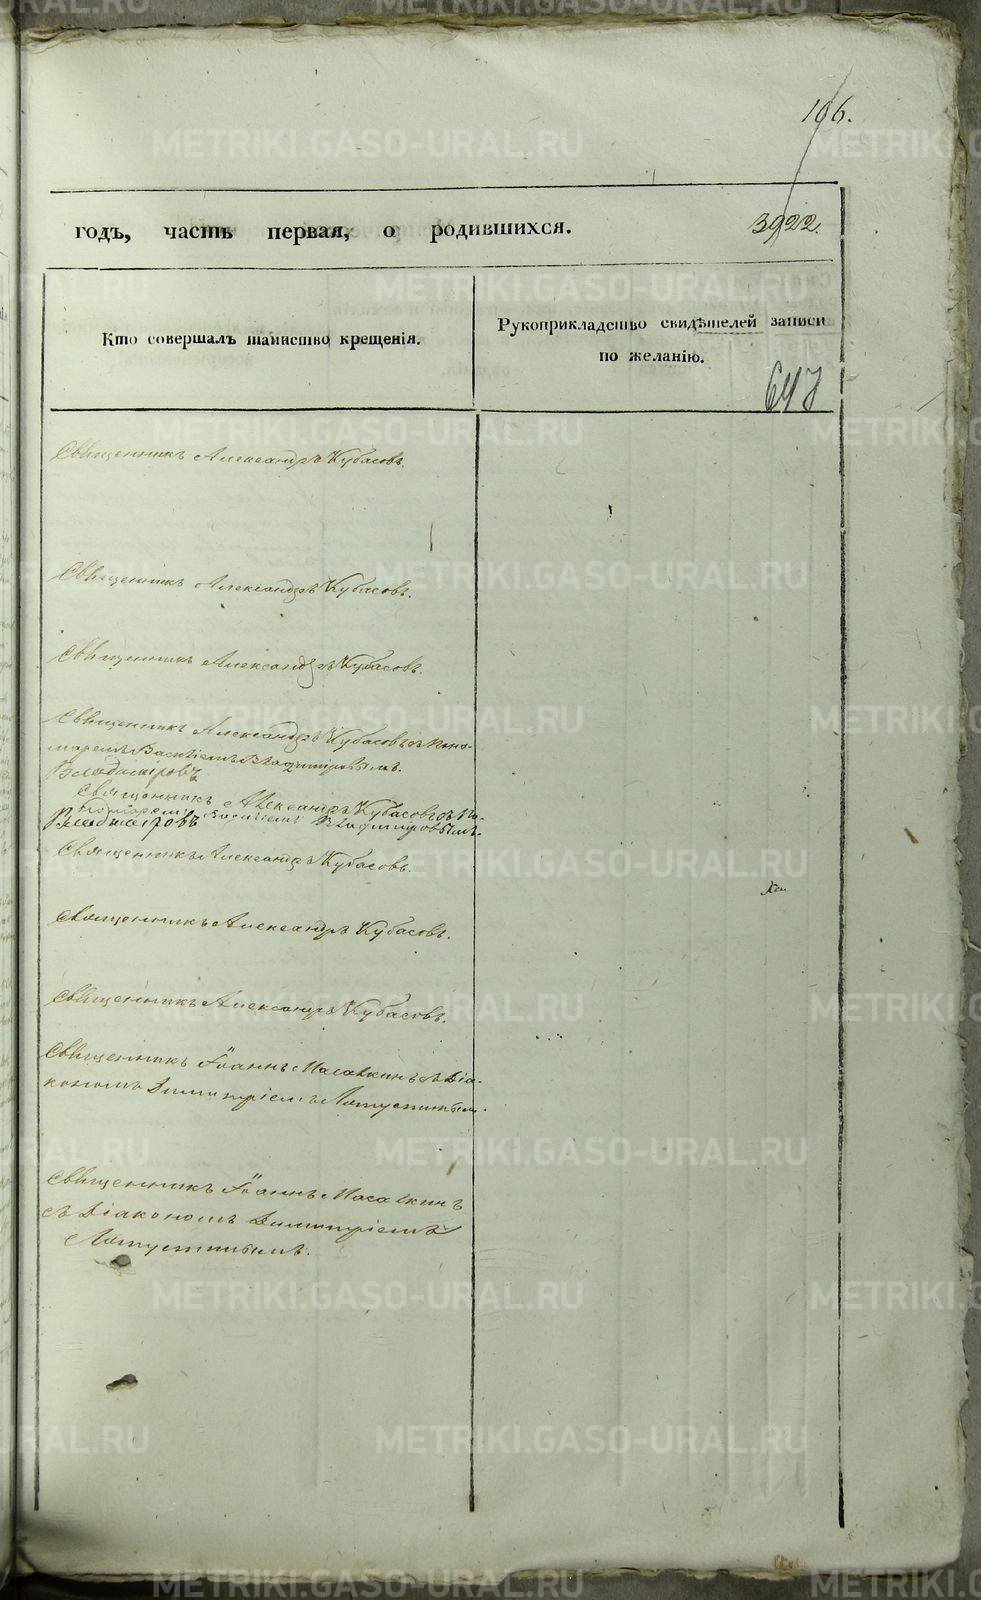 106.
годъ, часть первая, о родившихся.
3922.
Кто совершалъ таинство крещенія.
Рукоприкладство свидѣтелей записи
по желанію.
647
Священникъ Александръ Кубасовъ.
Священникъ Александръ Кубасовъ.
Священникъ Александръ Кубасовъ.
Священникъ Александръ Кубасовъ съ поно-
маремъ Василіемъ Владиміровымъ.
Владиміровъ
Священникъ Александръ Кубасовъ съ по-
номаремъ Василіемъ Владиміровымъ.
Владиміровъ
Священникъ Александръ Кубасовъ.
Священникъ Александръ Кубасовъ.
Священникъ Александръ Кубасовъ.
Священникъ Іоаннъ Масалкинъ съ Діа-
кономъ Димитріемъ
Священникъ Іоаннъ Масалкинъ
съ Діакономъ Димитріемъ
METRIKI.GASO-URAL.RU